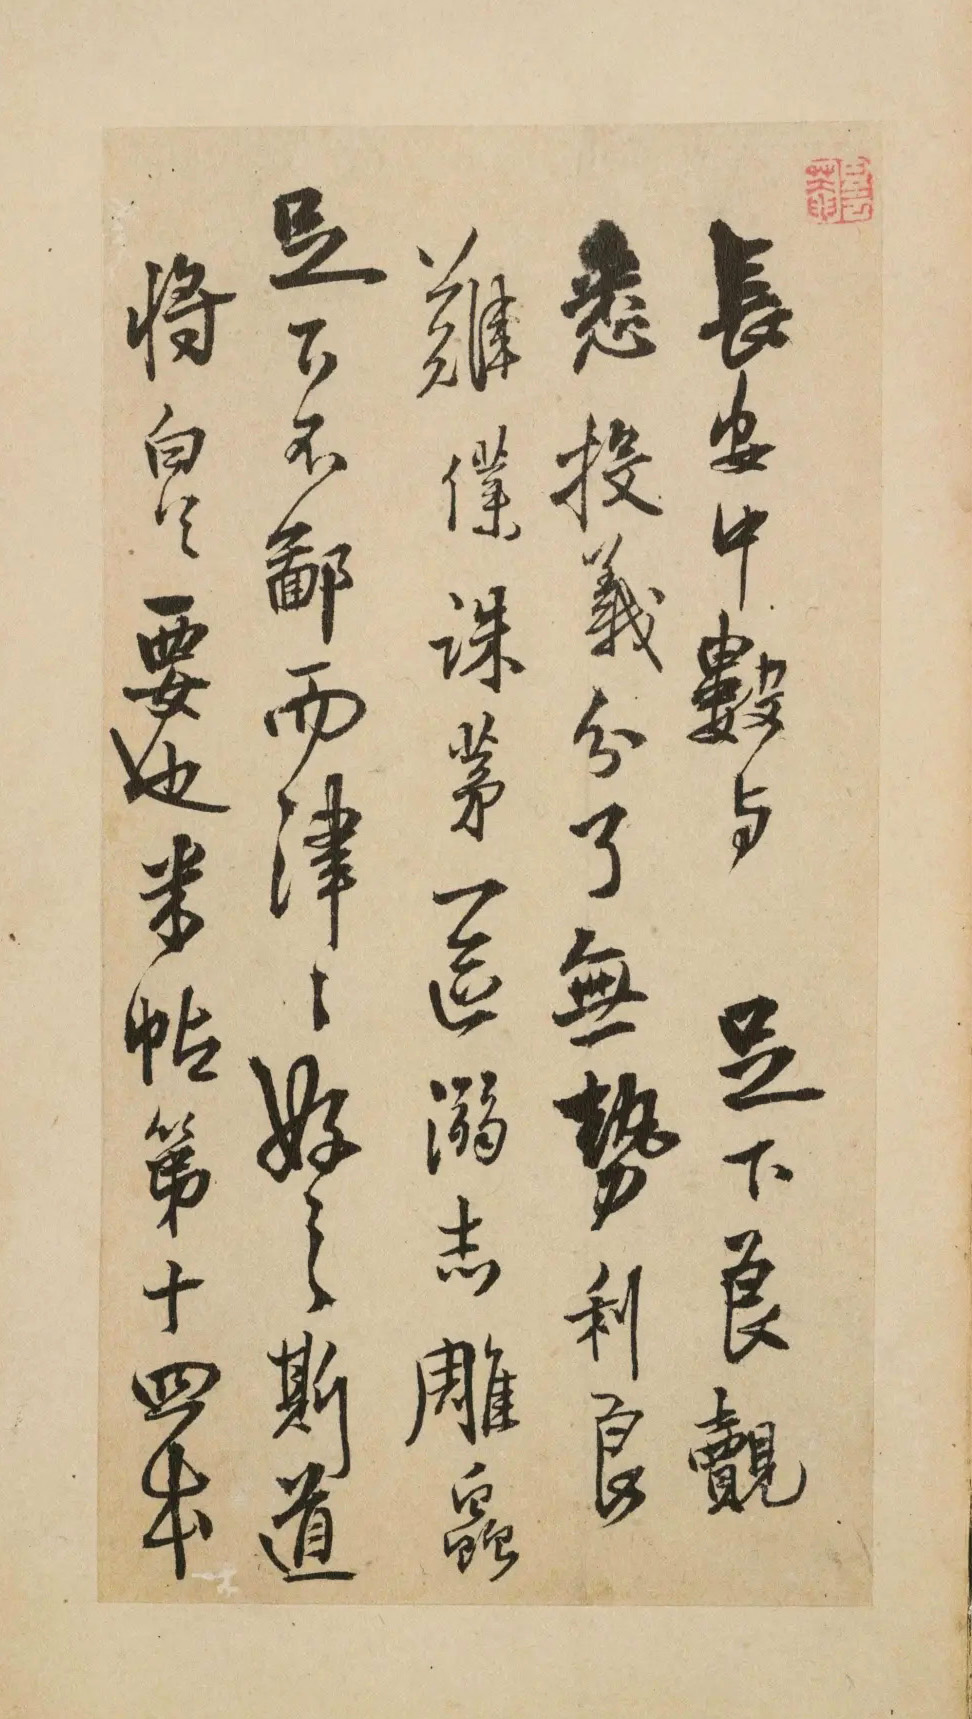 長安中數与 足下良覿
悉投義分了無勢利良
難僕誅茅一區溺志雕蟲
足下不鄙而津津好之斯道
將自是要也米帖第十四本